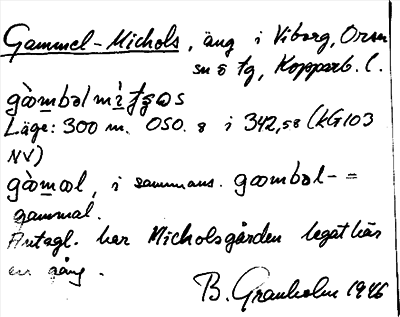 Gammel-Michols, äng i Viborg, Orsa
sn o fg, Kopparb. l.
Läge: 300 m. OSO. 8 i 342,58 (KG103
NV)
i sammans. =
gammal.
Antagl. har Micholsgården legat här
en gång.
B. Granholm 1946